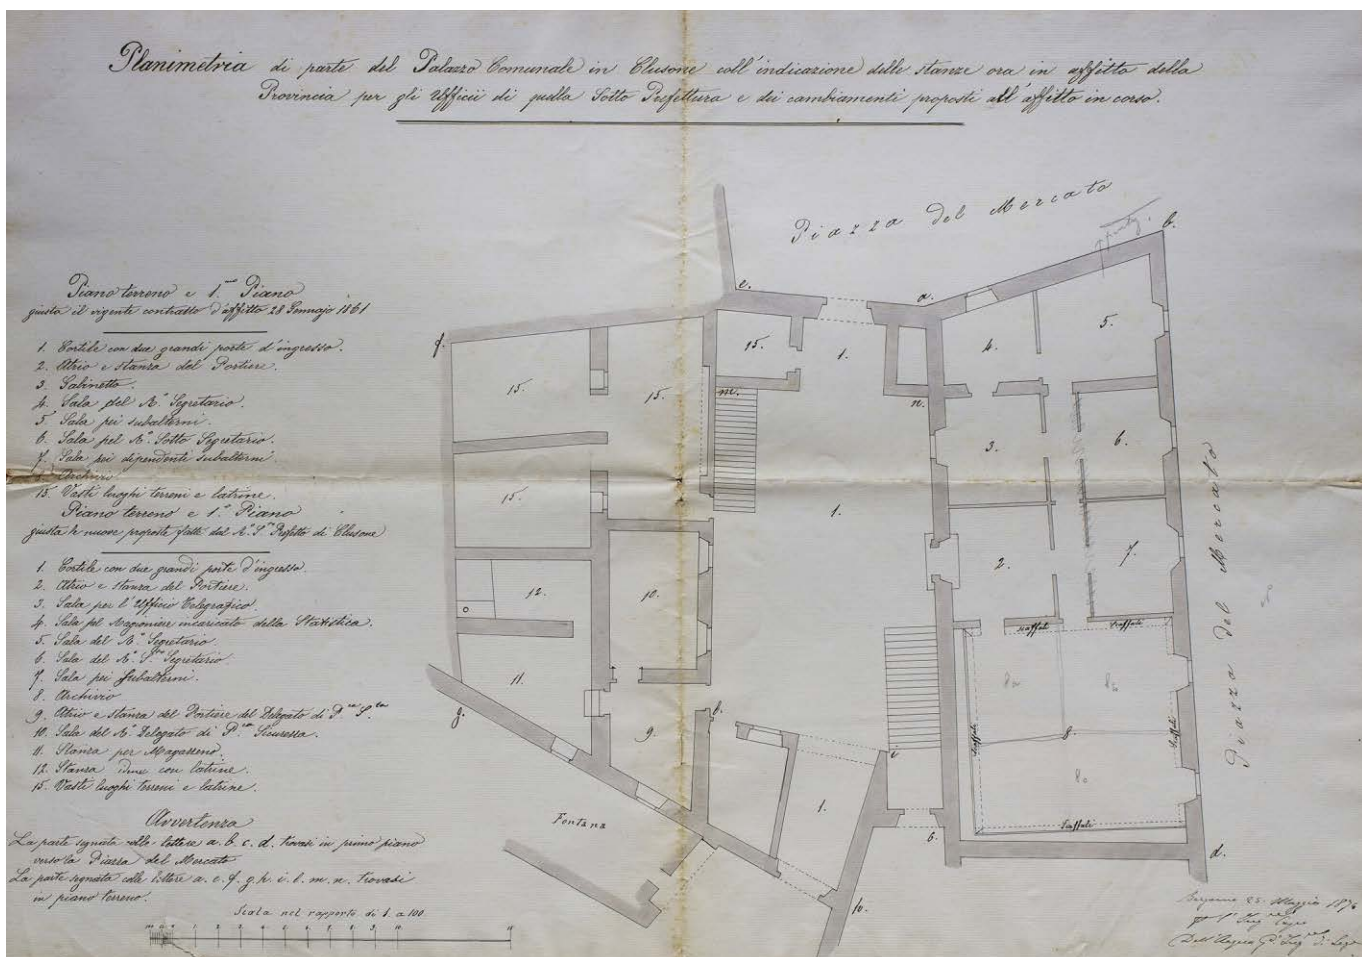 Planimetria di parte del Palazzo Comunale in Clusone coll'indicazione delle stanze ora in affitto della
Provincia per gli Ufficii di quella Sotto Prefettura e dei cambiamenti proposti all'affitto in corso.
Piazza del Mercato
Piano terreno e 1.mo Piano
giusta il vigente contratto d'affitto 28 Gennajo 1861
1. Cortile con due grandi porte d'ingresso.
2. Atrio e stanza del Portiere.
3. Gabinetto.
4. Sala del R.o Segretario.
5. Sala pei subalterni.
6. Sala pel R.o Sotto Segretario.
7. Sala pei dipendenti subalterni.
Archivio
15. Vasti luoghi terreni e latrine.
Piano terreno e 1.o Piano
giusta le nuove proposte fatte dal R. S. Prefetto di Clusone
1. Cortile con due grandi porte d'ingresso.
2. Atrio e stanza del Portiere.
3. Sala per l'Ufficio Telegrafico.
4. Sala pel Ragioniere incaricato della Statistica.
5. Sala del R.o Segretario.
6. Sala del R.o S. Segretario.
7. Sala pei Subalterni.
8. Archivio
9. Atrio e stanza del Portiere del Delegato di P. S.
10. Sala del R.o Delegato di P. Sicurezza.
11. Stanza per Magazzeno.
12. Stanza con latrine.
15. Vasti luoghi terreni e latrine.
Avvertenza
La parte segnata colle lettere a. b. c. d. trovasi in primo piano
verso la Piazza del Mercato
La parte segnata colle lettere a. e. f. g. h. i. l. m. n. trovasi
in piano terreno.
Scala nel rapporto di 1. a 100
e.
a.
b.
f.
15.
15.
15.
1.
4.
5.
m.
n.
3.
6.
15.
1.
2.
7.
12.
10.
scaffali
scaffali
11.
8
scaffali
scaffali
scaffali
g.
9.
i
1.
Fontana
d.
h.
Piazza del Mercato
Bergamo 25 Maggio 1876